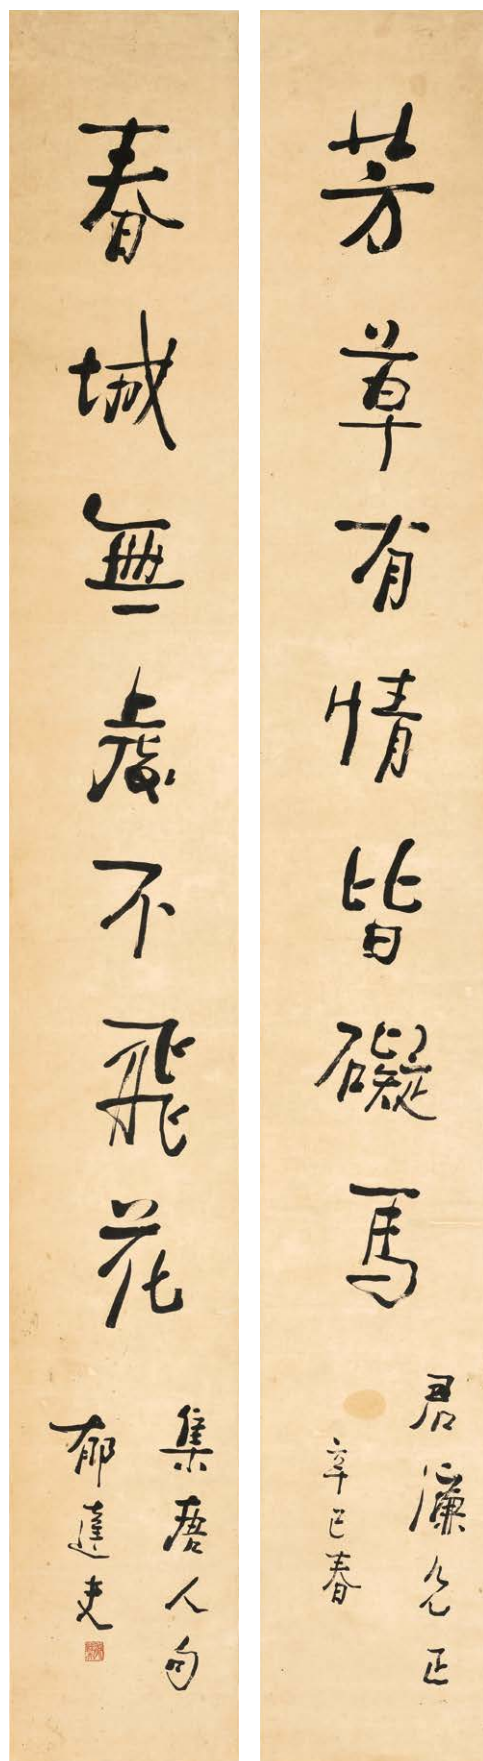 芳草有情皆礙馬
君濂允正
辛巳春
春城無處不飛花
集唐人句
郁達夫